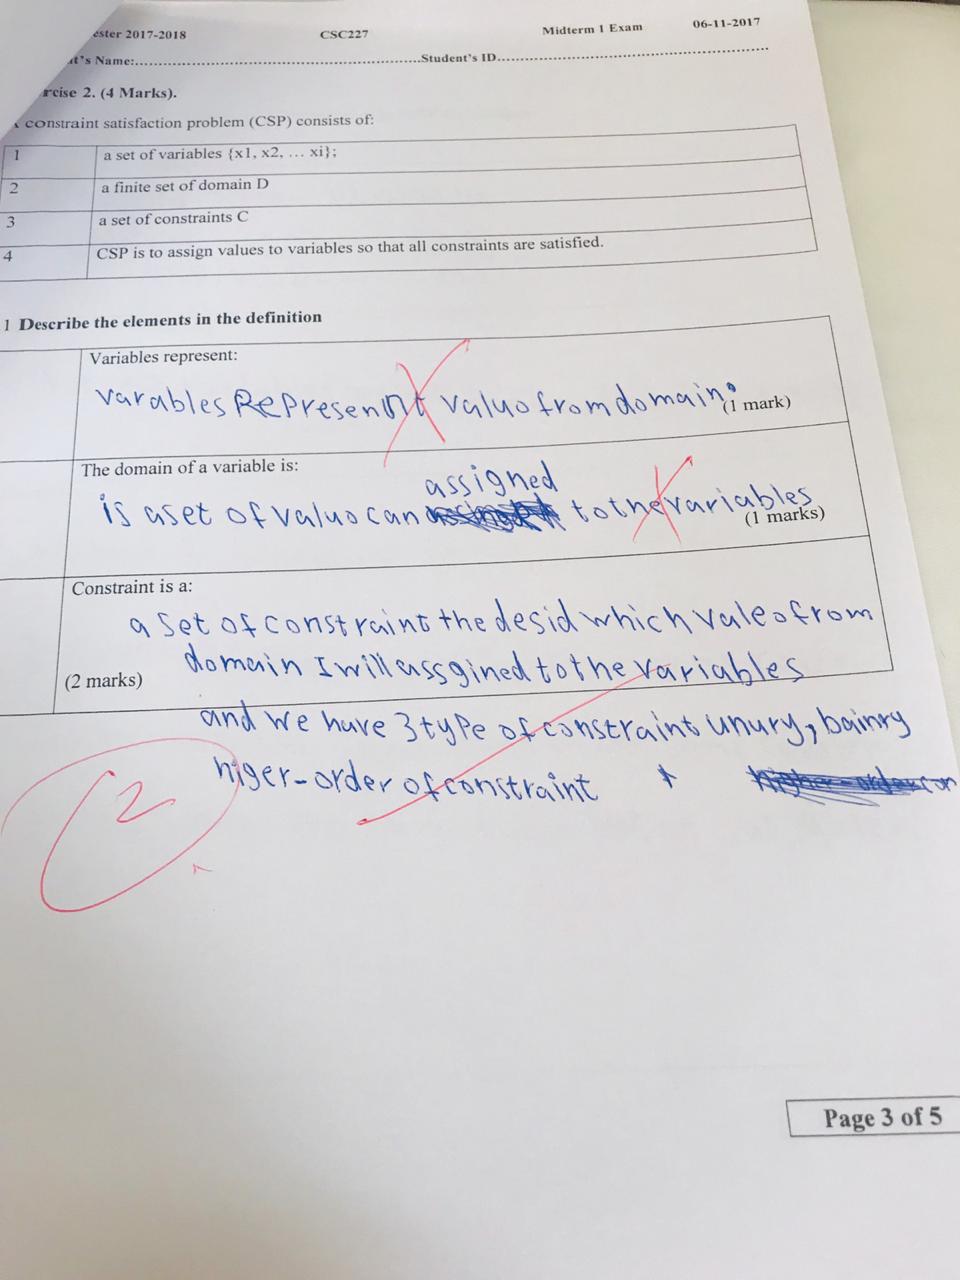 ester 2017-2018 CSC227 Midterm 1 Exam 06-11-2017
nt's Name:.......................................................Student's ID....................................................
rcise 2. (4 Marks).
constraint satisfaction problem (CSP) consists of:
1 a set of variables {x1, x2, ... xi};
2 a finite set of domain D
3 a set of constraints C
4 CSP is to assign values to variables so that all constraints are satisfied.
1 Describe the elements in the definition
Variables represent:
varables Represent valuo from domain.
(1 mark)
The domain of a variable is:
assigned
is a set of valuo can to the variables
(1 marks)
Constraint is a:
a set of constraint the desid which valeo from
domain I will assgined to the variables
(2 marks)
and we have 3 type of constraint unury, bainry
higer-order of constraint
2
Page 3 of 5